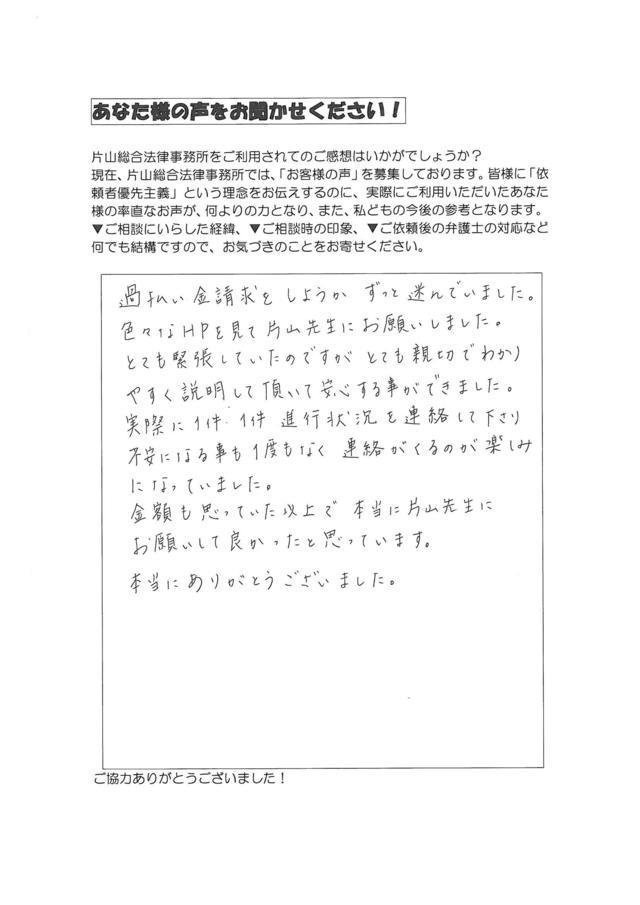 あなた様の声をお聞かせください！
片山総合法律事務所をご利用されてのご感想はいかがでしょうか？
現在、片山総合法律事務所では、「お客様の声」を募集しております。皆様に「依
頼者優先主義」という理念をお伝えするのに、実際にご利用いただいたあなた
様の率直なお声が、何よりの力となり、また、私どもの今後の参考となります。
▼ご相談にいらした経緯、▼ご相談時の印象、▼ご依頼後の弁護士の対応など
何でも結構ですので、お気づきのことをお寄せください。
過払い金請求をしようか ずっと迷んでいました。
色々なHPを見て片山先生にお願いしました。
とても緊張していたのですが とても親切でわかり
やすく説明して頂いて安心する事ができました。
実際に1件1件 進行状況を連絡して下さり
不安になる事も1度もなく 連絡がくるのが楽しみ
になっていました。
金額も思っていた以上で 本当に片山先生に
お願いして良かったと思っています。
本当にありがとうございました。
ご協力ありがとうございました！